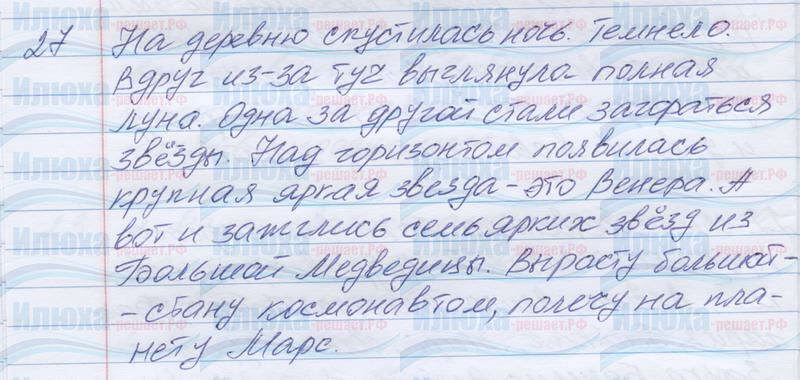 27 На деревню спустилась ночь. Темнело.
Вдруг из-за туч выглянула полная
луна. Одна за другой стали загораться
звёзды. Над горизонтом появилась
крупная яркая звезда - это Венера. А
вот и зажглись семь ярких звёзд из
Большой Медведицы. Вырасту большой -
- стану космонавтом, полечу на пла-
нету Марс.